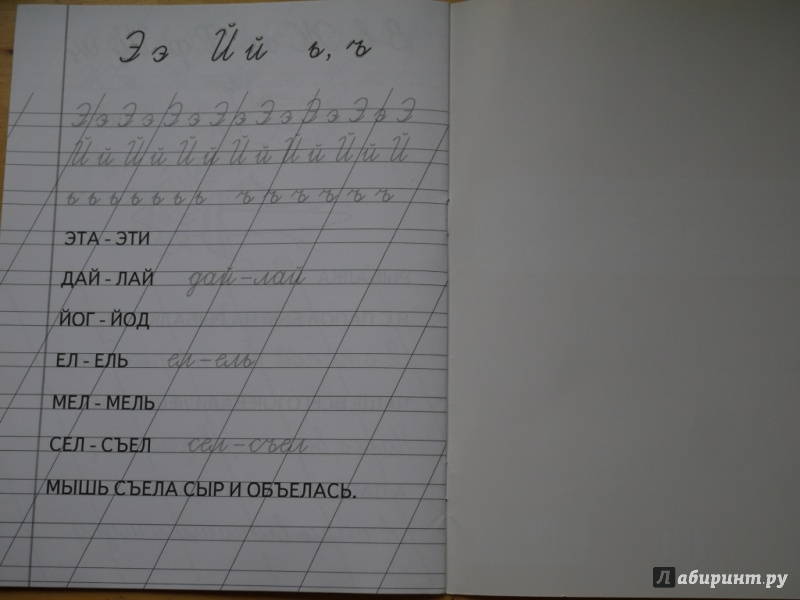 Э э Й й ь, ъ
Э э Э э Э э Э э Э э Э э Э э Э
Й й Й й Й й Й й Й й Й й Й
ь ь ь ь ь ь ь ъ ъ ъ ъ ъ ъ
ЭТА - ЭТИ
ДАЙ - ЛАЙ дай - лай
ЙОГ - ЙОД
ЕЛ - ЕЛЬ ел - ель
МЕЛ - МЕЛЬ
СЕЛ - СЪЕЛ сел - съел
МЫШЬ СЪЕЛА СЫР И ОБЪЕЛАСЬ.
Лабиринт.ру